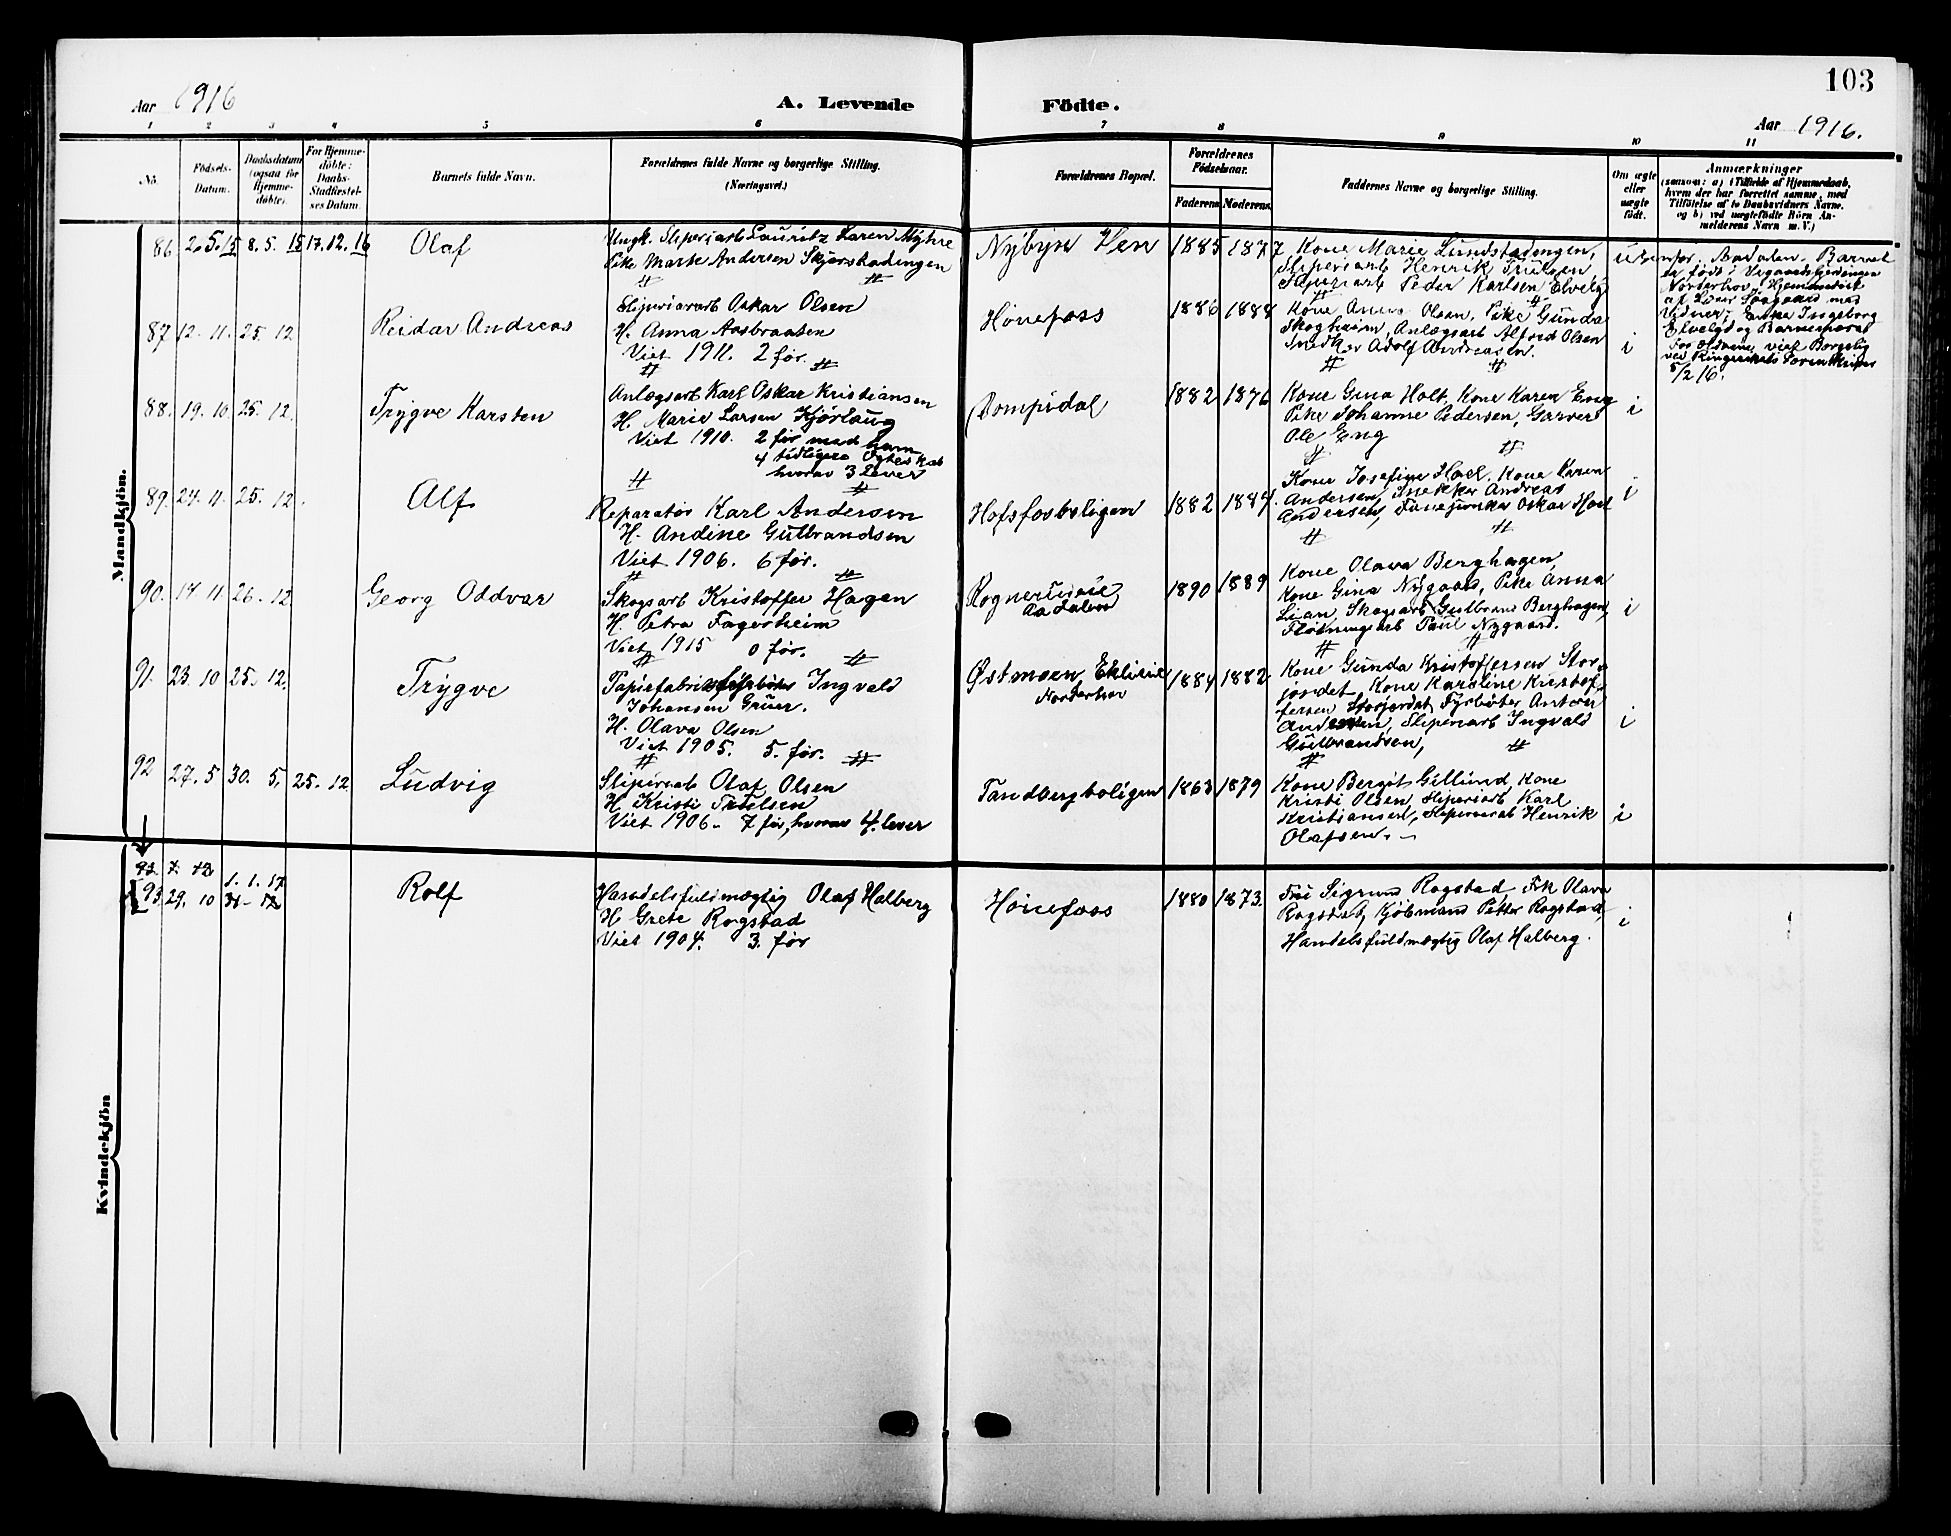 103
Aar 1916
A. Levende
Födte.
Aar 1916.
1 2 3 4 5 6 7 8 9 10 11
No.
Födsels-
Datum.
Daabsdatum
(ogsaa for
Hjemme-
döbte).
For Hjemme-
döbte:
Daabs-
Stadfæstel-
ses Datum.
Barnets fulde Navn.
Forældrenes fulde Navne og borgerlige Stilling.
(Næringsvei.)
Forældrenes Bopæl.
Forældrenes
Födselsaar.
Faderens Moderens
Faddernes Navne og borgerlige Stilling.
Om ægte
eller
uægte
födt.
Anmærkninger
(saasom: a) i Tilfælde af Hjemmedaab,
hvem der har forrettet samme, med
Tilföielse af to Daabsvidners Navne.
og b) ved uægtefödte Börn An-
melderens Navn m. V.)
Mandkjön.
86 2.5.15 8.5.15 17.12.16
Olaf
Ungk. Sliperiarb Lauritz Myhre
Pike Andersen
Nybyn Hen
1885 1877
Kone Marie Lundstadengen,
Sliperiarb Henrik
Sliperiarb Peder Karlsen Elvely
u
Aadalen. Barnet
er født i
Norderhov, Hjemmedøbt
med
Vidner; Enke Ingeborg
Elvely og
viet Borgerlig
5/2 16.
87 12.11. 25.12
Reidar Andreas
Sliperiarb Oskar Olsen
H. Anna Aasbraaten
Viet 1911. 2 før.
Hønefoss
1886 1888
Kone Anna Olsen, Pike Gunda
Skogheim, Anlægsarb Alfred Olsen
Snedker Adolf Andreasen.
i
88. 19.10. 25.12.
Trygve Karsten
Anlægsarb Karl Oskar Kristiansen
H. Marie Larsen Kjørlaug
Viet 1910. 2 før med ham
4 tidligere Ægteskab
hvorav 3 lever
1882 1876
Kone Gina Holt, Kone Karen Eng
Pike Johanne Pedersen, Garver
Ole Eng
i
89. 24.11. 25.12.
Alf
Reparatør Karl Andersen
H. Andine Gulbrandsen
Viet 1906. 6 før.
Hofsfosboligen
1882 1884.
Kone Josefine Hoel. Kone Karen
Andersen, Snekker Andreas
Andersen, Oskar Hoel
i
90. 17.11. 26.12
Georg Oddvar
Skogsarb Kristoffer Hagen
H. Petra Fagerheim
Viet 1915 0 før.
Aadalen
1890 1889
Kone Olava Berghagen,
Kone Gina Nygaard, Pike Anna
Lian, Skogsarb Gulbrand Berghagen,
Fløtningsarb Paul Nygaard.
i
91. 23.10 25.12.
Trygve
Ingvald
Johansen Gruer.
H. Olava Olsen
Viet 1905. 5. før.
Østmoen
Norderhov
1884 1882
Kone Gunda Kristoffersen Stor-
jordet, Kone Karoline Kristof-
fersen Storjordet, Fyrbøter Anton
Andersen, Sliperiarb Ingvald
Gulbrandsen,
i
92 27.5 30.5, 25.12
Ludvig
Sliperiarb Olaf Olsen
H. Kristi
Viet 1906. 7 før, hvorav 4 lever
Tandbergboligen
1863 1879
Kone Bergit Gullund, Kone
Kristi Olsen, Sliperiarb Karl
Kristiansen, Sliperiarb Henrik
Olafsen.
i
Kvindekjön
1.1.17
93. 29.10
Rolf
Handelsfuldmægtig Olaf Halberg
H. Grete Rogstad
Viet 1904. 3. før
Hønefoss
1880 1873.
Fru Sigrund Rogstad Frk Olava
Rogstad, Kjøbmand Petter Rogstad,
Handelsfuldmægtig Olaf Halberg.
i